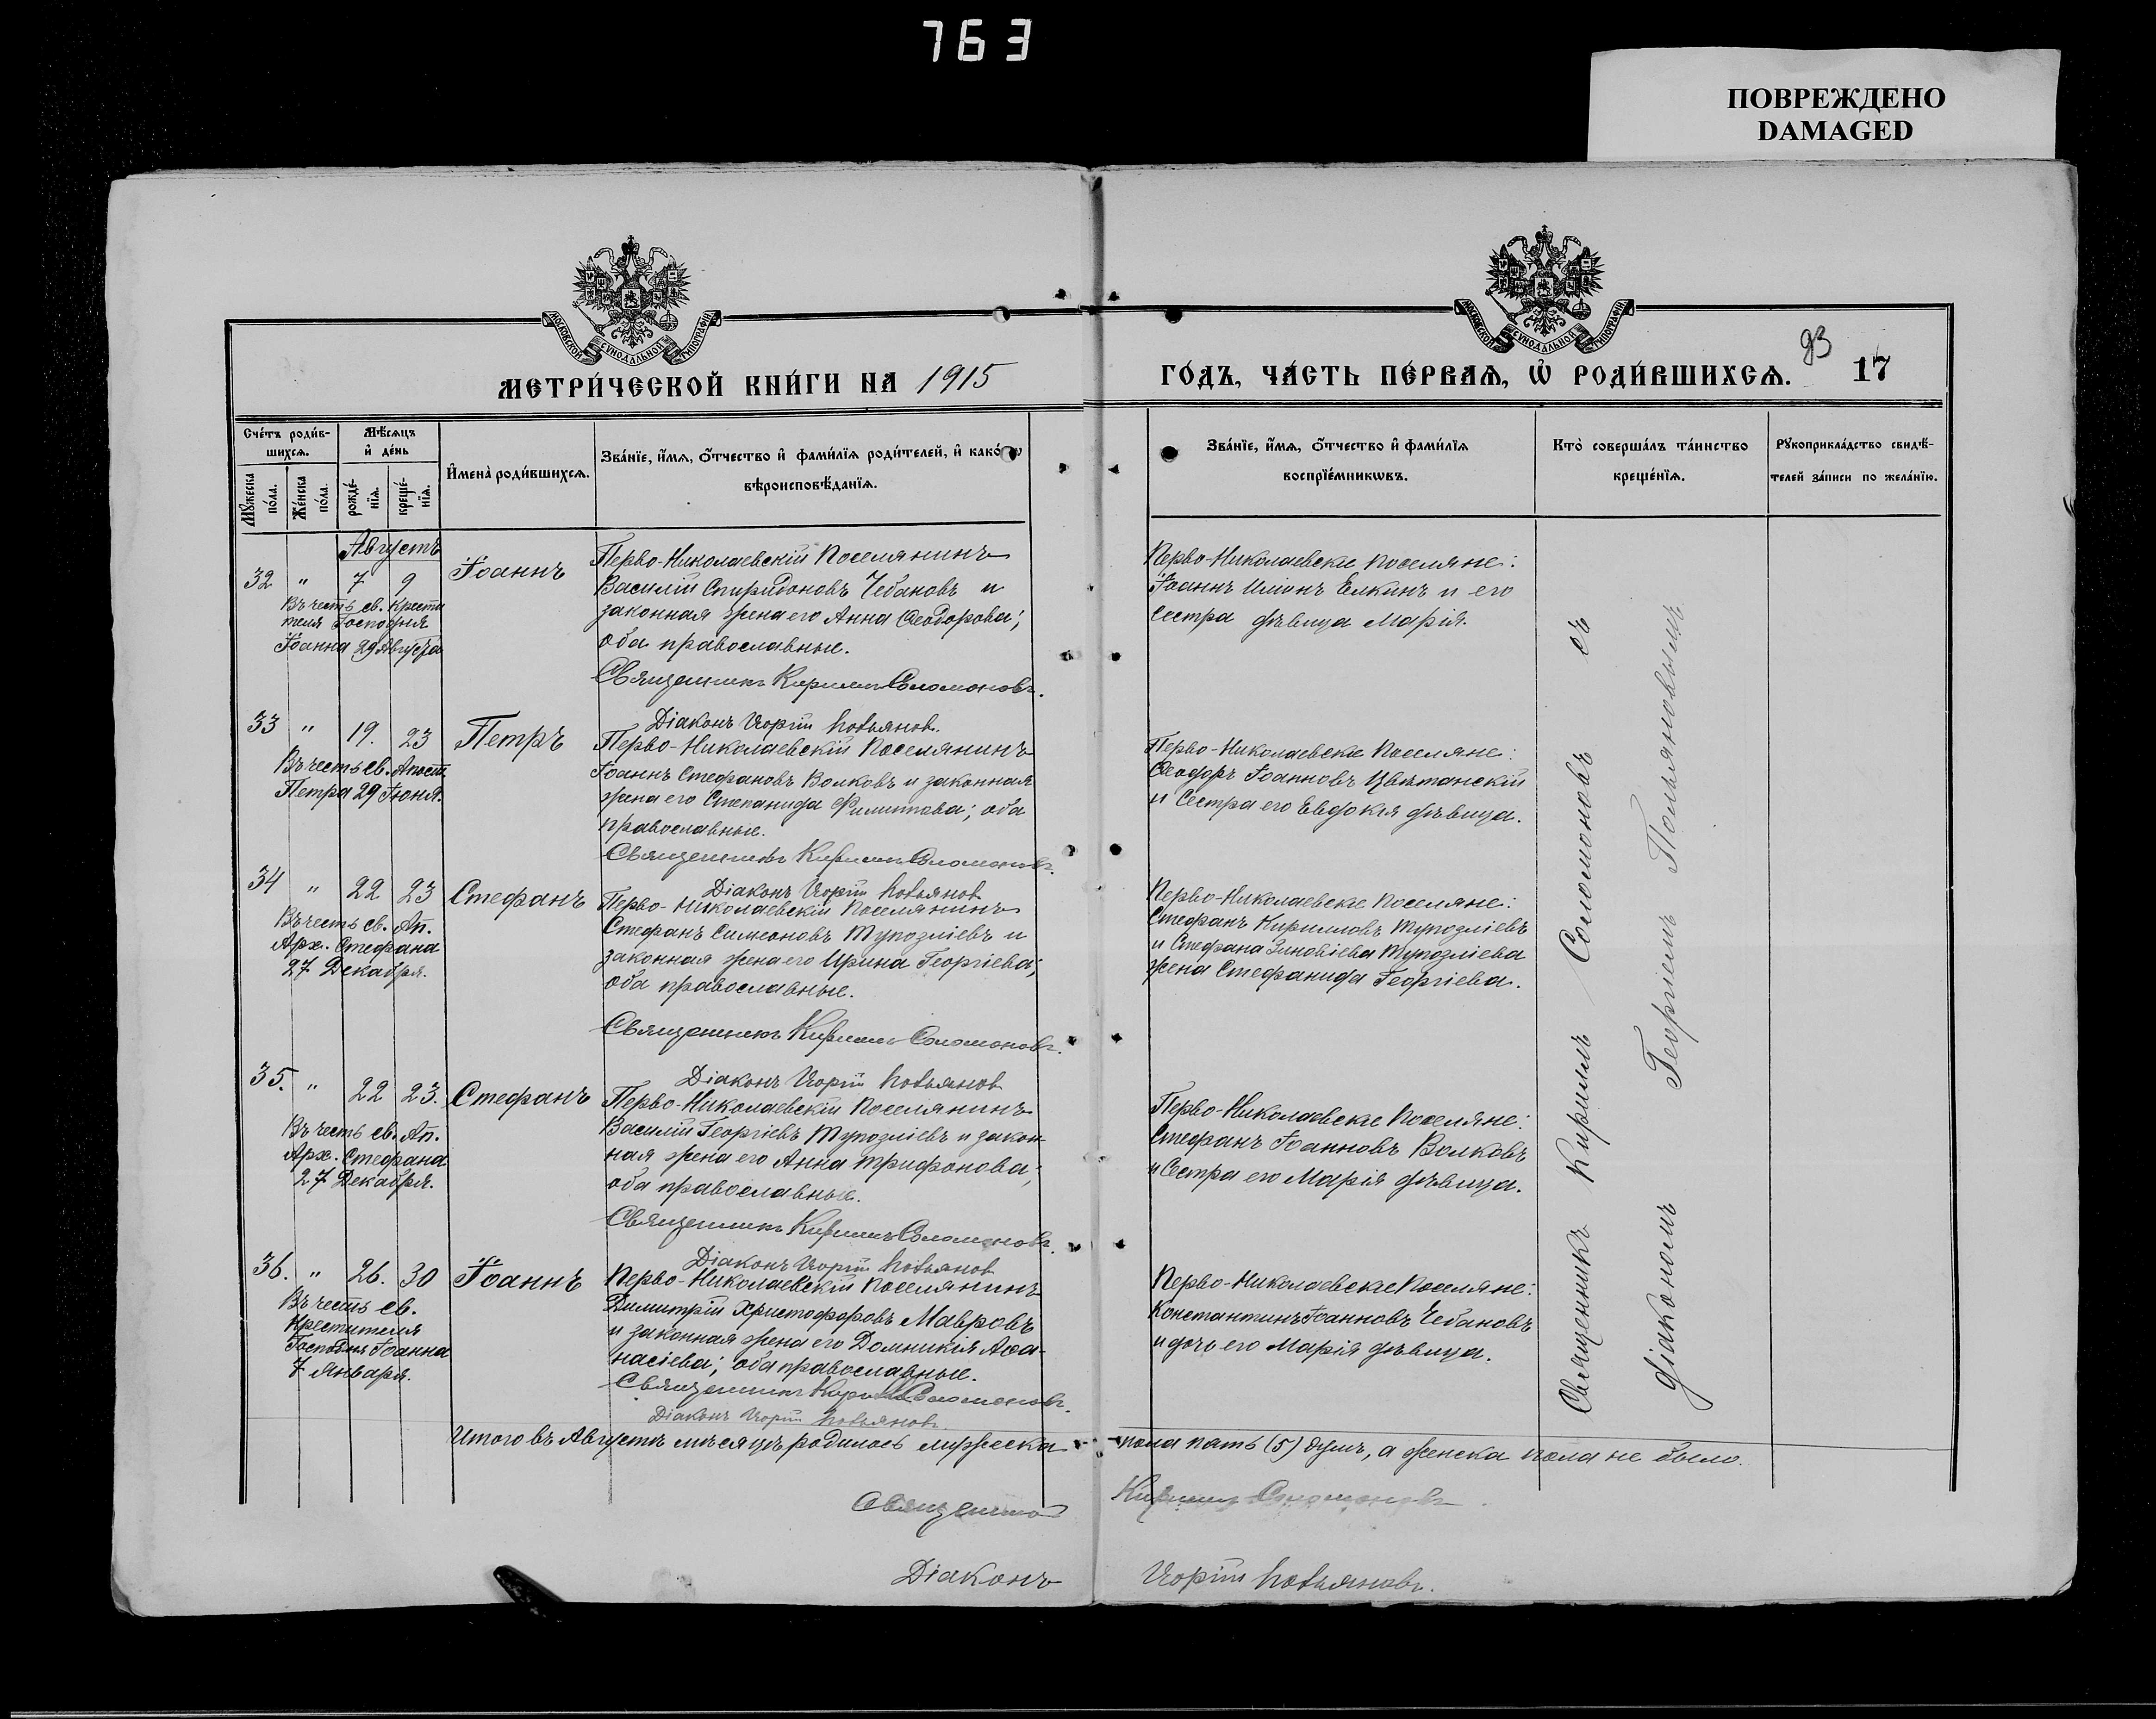 763
ПОВРЕЖДЕНО
DAMAGED
МОСКОВСКОЙ СѴНОДАЛЬНОЙ ТИПОГРАФІИ
МОСКОВСКОЙ СѴНОДАЛЬНОЙ ТИПОГРАФІИ
МЕТРИ́ЧЕСКОЙ КНИ́ГИ НА 1915
ГО́ДЪ, ЧА́СТЬ ПЕ́РВАѦ, Ѡ҆ РОДИ́ВШИХСѦ.
93
17
Сче́тъ роди́в-
шихсѧ.
Мꙋ́жеска
по́ла.
Же́нска
по́ла.
Мѣ́сѧцъ
и҆ де́нь
рожде́-
нїѧ.
креще́-
нїѧ.
И҆мена̀ роди́вшихсѧ.
Зва́нїе, и҆́мѧ, ѻ҆́тчество и҆ фами́лїѧ роди́телей, и҆ како́гѡ
вѣроисповѣ́данїѧ.
Зва́нїе, и҆́мѧ, ѻ҆́тчество и҆ фами́лїѧ
воспрїе́мникѡвъ.
Кто̀ соверша́лъ та́инство
креще́нїѧ.
Рꙋкоприкла́дство свидѣ́-
телей за́писи по жела́нїю.
Августъ
32 " 7 9 Іоаннъ
Въ честь св. Крести
теля Господня
Іоанна 29 Августа
Перво-Николаевскій поселянинъ
Василій Спиридоновъ Чебановъ и
законная жена его Анна Ѳеодорова;
оба православные.
Священникъ Кириллъ Соломоновъ.
Діаконъ
Перво-Николаевскіе поселяне:
Іоаннъ Елкинъ и его
сестра дѣвица Марія.
33 " 19. 23 Петръ
Въ честь св. Апост.
Петра 29 Іюня.
Перво-Николаевскій поселянинъ
Іоаннъ Стефановъ Волковъ и законная
жена его Степанида Филиппова; оба
православные.
Священникъ Кириллъ Соломоновъ.
Діаконъ
Перво-Николаевскіе поселяне:
Ѳеодоръ Іоанновъ Цвѣтанскій
и сестра его Евдокія дѣвица.
34 " 22 23 Стефанъ
Въ честь св. Ап.
Арх. Стефана
27 Декабря.
Перво-Николаевскій поселянинъ
Стефанъ Симеоновъ Тупозліевъ и
законная жена его Ирина Георгіева;
оба православные.
Священникъ Кириллъ Соломоновъ.
Діаконъ
Перво-Николаевскіе поселяне:
Стефанъ Кирилловъ Тупозліевъ
и Стефана Зиновіева Тупозліева
жена Стефанида Георгіева.
35. " 22 23. Стефанъ
Въ честь св. Ап.
Арх. Стефана
27 Декабря.
Перво-Николаевскій поселянинъ
Василій Георгіевъ Тупозліевъ и закон-
ная жена его Анна Трифонова;
оба православные.
Священникъ Кириллъ Соломоновъ.
Діаконъ
Перво-Николаевскіе поселяне:
Стефанъ Іоанновъ Волковъ
и сестра его Марія дѣвица.
36. " 26. 30 Іоаннъ
Въ честь св.
Крестителя
Господня Іоанна
7 Января.
Перво-Николаевскій поселянинъ
Димитрій Христофоровъ Мавровъ
и законная жена его Домникія Аѳа-
насіева; оба православные.
Священникъ Кириллъ Соломоновъ.
Діаконъ
Перво-Николаевскіе поселяне:
Константинъ Іоанновъ Чебановъ
и дочь его Марія дѣвица.
Священникъ Кириллъ Соломоновъ съ
діакономъ Георгіемъ Польяновымъ
Итого въ Августѣ мѣсяцѣ родилось мужеска пола пять (5) душъ, а женска пола не было.
Священникъ Кириллъ Соломоновъ
Діаконъ